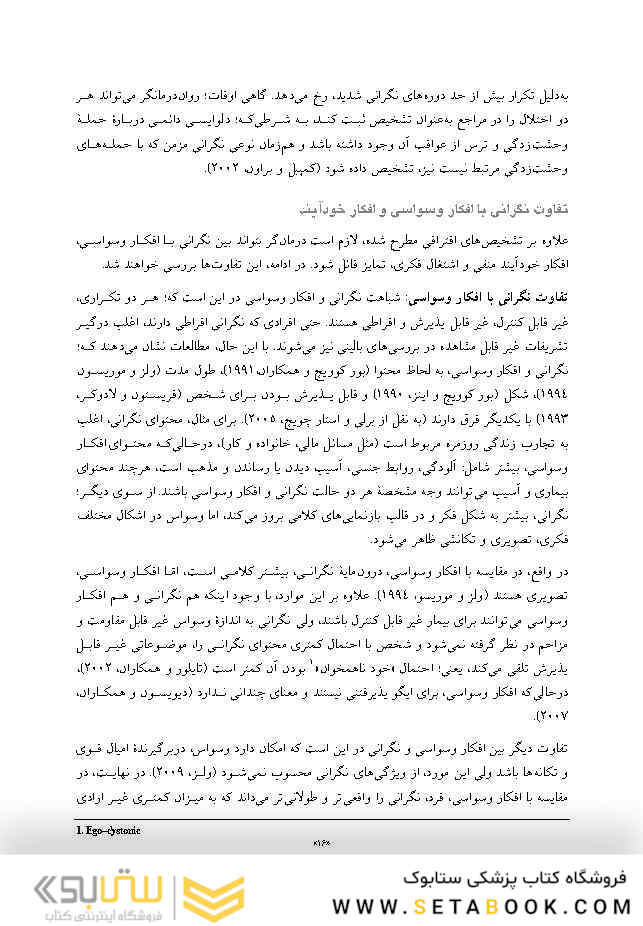 به‌دلیل تکرار بیش از حد دوره‌های نگرانی شدید، رخ می‌دهد. گاهی اوقات؛ روان‌درمانگر می‌تواند هر
دو اختلال را در مراجع به‌عنوان تشخیص ثبت کند، به شرطی‌که؛ دلواپسی دائمی دربارهٔ حملهٔ
وحشت‌زدگی و ترس از عواقب آن وجود داشته باشد و هم‌زمان نوعی نگرانی مزمن که با حمله‌های
وحشت‌زدگی مرتبط نیست نیز، تشخیص داده شود (کمپبل و براون، ۲۰۰۲).
تفاوت نگرانی با افکار وسواسی و افکار خودآیند
علاوه بر تشخیص‌های افتراقی مطرح شده، لازم است درمان‌گر بتواند بین نگرانی با افکار وسواسی،
افکار خودآیند منفی و اشتغال فکری، تمایز قائل شود. در ادامه، این تفاوت‌ها بررسی خواهند شد.
تفاوت نگرانی با افکار وسواسی: شباهت نگرانی و افکار وسواسی در این است که؛ هر دو تکراری،
غیر قابل کنترل، غیر قابل پذیرش و افراطی هستند. حتی افرادی که نگرانی افراطی دارند، اغلب درگیر
تشریفات غیر قابل مشاهده در بررسی‌های بالینی نیز می‌شوند. با این حال، مطالعات نشان می‌دهند که؛
نگرانی و افکار وسواسی، به لحاظ محتوا (بور کوویچ و همکاران،۱۹۹۱)، طول مدت (ولز و موریسون
۱۹۹٤)، شکل (بور کوویچ و اینز، ۱۹۹۰) و قابل پذیرش بودن برای شخص (فریستون و لادوکر،
۱۹۹۳) با یکدیگر فرق دارند (به نقل از برلی و استار چویچ، ۲۰۰۵). برای مثال، محتوای نگرانی، اغلب
به تجارب زندگی روزمره مربوط است (مثل مسائل مالی، خانواده و کار)، درحالی‌که محتوای افکار
وسواسی، بیشتر شامل: آلودگی، روابط جنسی، آسیب دیدن یا رساندن و مذهب است، هرچند محتوای
بیماری و آسیب می‌توانند وجه مشخصهٔ هر دو حالت نگرانی و افکار وسواسی باشند. از سوی دیگر؛
نگرانی، بیشتر به شکل فکر و در قالب بازنمایی‌های کلامی بروز می‌کند، اما وسواس در اشکال مختلف
فکری، تصویری و تکانشی ظاهر می‌شود.
در واقع، در مقایسه با افکار وسواسی، درون‌مایهٔ نگرانی، بیشتر کلامی است، اما افکار وسواسی،
تصویری هستند (ولز و موریسو، ۱۹۹٤). علاوه بر این موارد، با وجود اینکه هم نگرانی و هم افکار
وسواسی می‌توانند برای بیمار غیر قابل کنترل باشند، ولی نگرانی به اندازهٔ وسواس غیر قابل مقاومت و
مزاحم در نظر گرفته نمی‌شود و شخص با احتمال کمتری محتوای نگرانی را، موضوعاتی غیر قابل
پذیرش تلقی می‌کند، یعنی؛ احتمال «خود ناهمخوان»۱ بودن آن کمتر است (تایلور و همکاران، ۲۰۰۲)،
درحالی‌که افکار وسواسی، برای ایگو پذیرفتنی نیستند و معنای چندانی ندارد (دیویسون و همکاران،
۲۰۰۷).
تفاوت دیگر بین افکار وسواسی و نگرانی در این است که امکان دارد وسواس، دربرگیرندهٔ امیال قوی
و تکانه‌ها باشد ولی این مورد، از ویژگی‌های نگرانی محسوب نمی‌شود (ولز، ۲۰۰۹). در نهایت، در
مقایسه با افکار وسواسی، فرد، نگرانی را واقعی‌تر و طولانی‌تر می‌داند که به میزان کمتری غیر ارادی
1. Ego–dystonic
«۱۶»
فروشگاه کتاب پزشکی ستابوک
WWW.SETABOOK.COM
ستابوک
فروشگاه اینترنتی کتاب